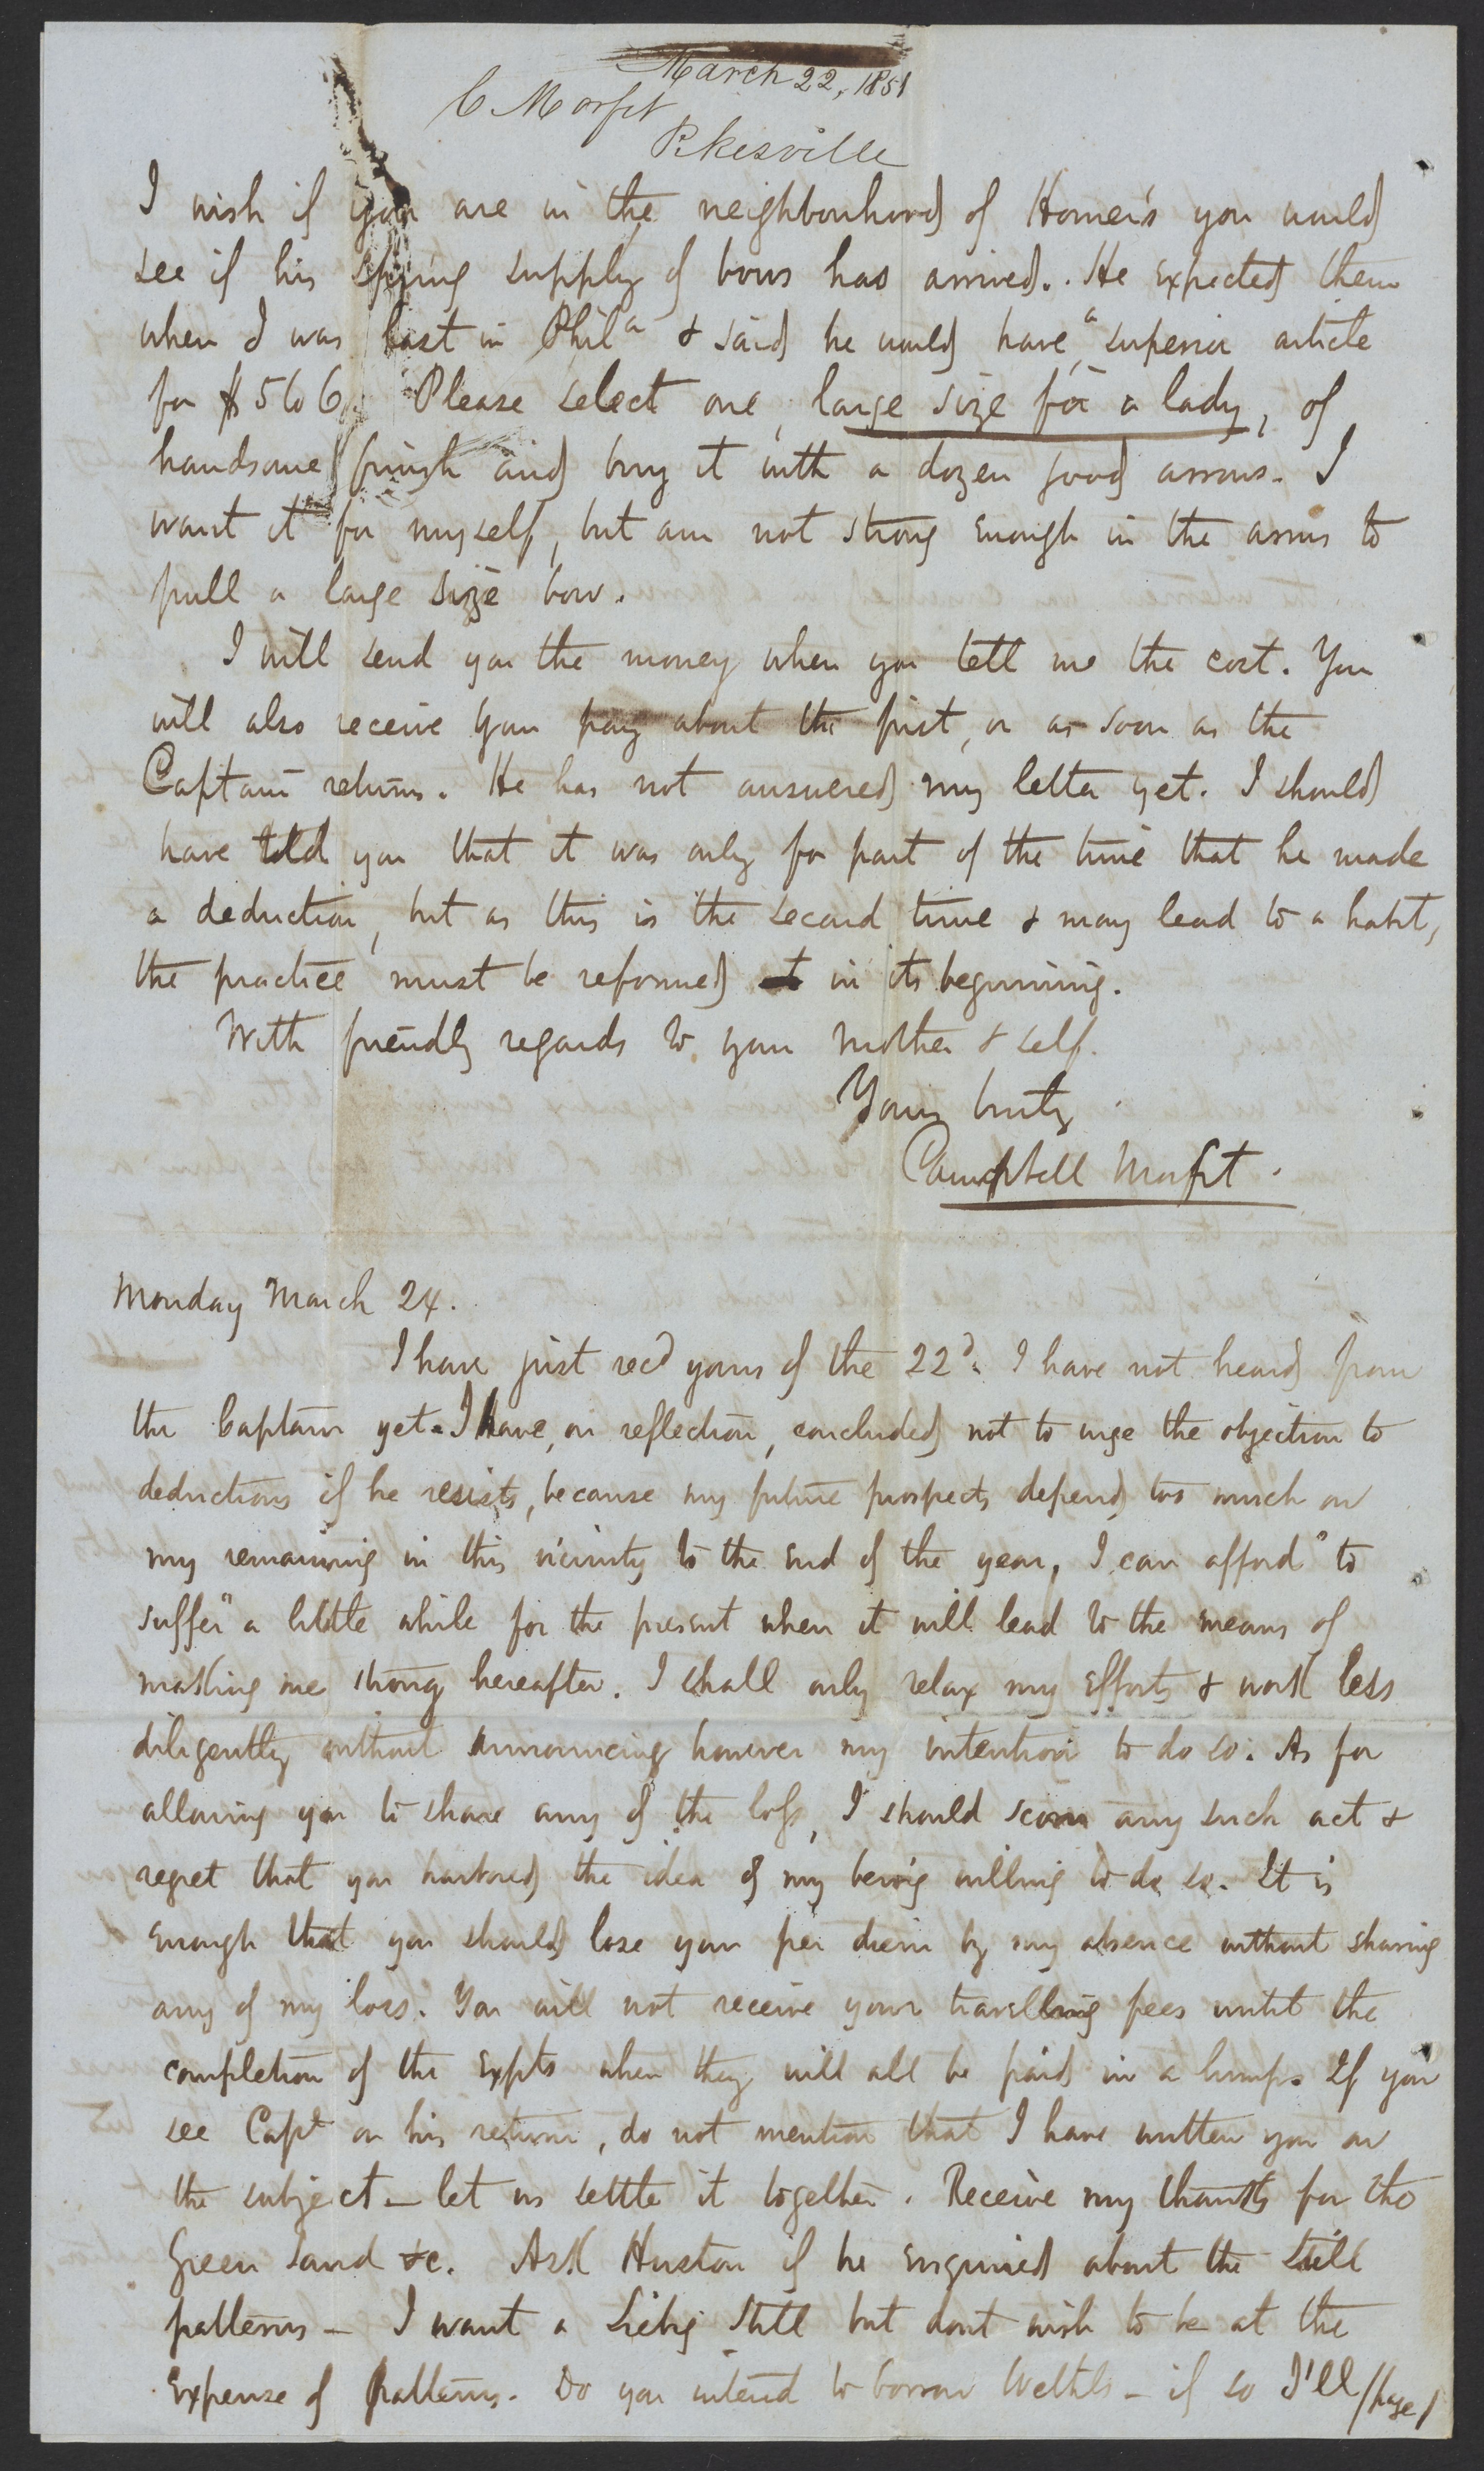 March 22, 1851
C Morfit
Pikesville
I wish if you are in the neighbourhood of Homer's you would
see if his spring supply of bows has arrived. He expected them
when I was last in Phila & said he would have a superior article
for $5 to 6. Please select one, large size for a lady, of
handsome finish and buy it with a dozen good arrows. I
want it for myself, but am not strong enough in the arms to
pull a large size bow.
I will send you the money when you tell me the cost. You
will also receive your pay about the first, or as soon as the
Captain returns. He has not answered my letter yet. I should
have told you that it was only for part of the time that he made
a deduction, but as this is the second time & may lead to a habit,
the practice must be reformed in its beginning.
With friendly regards to your mother & self.
Yours truly
Campbell Morfit.
Monday March 24.
I have just recd yours of the 22d. I have not heard from
the Captain yet. I have, on reflection, concluded not to urge the objection to
deductions if he resists, because my future prospects depend too much on
my remaining in this vicinity to the end of the year, I can afford "to
suffer" a little while for the present when it will lead to the means of
making me strong hereafter. I shall only relax my efforts & work less
diligently without announcing however my intention to do so. As for
allowing you to share any of the loss, I should scorn any such act &
regret that you harbored the idea of my being willing to do so. It is
enough that you should lose your per diem by my absence without sharing
any of my loss. You will not receive your travelling fees until the
completion of the expts when they will all be paid in a lump. If you
see Capt on his return, do not mention that I have written you on
the subject — let us settle it together. Receive my thanks for the
Green sand &c. Ask Huston if he enquired about the still
patterns — I want a Liebig still but dont wish to be at the
expense of patterns. Do you intend to borrow — if so I'll /page 1